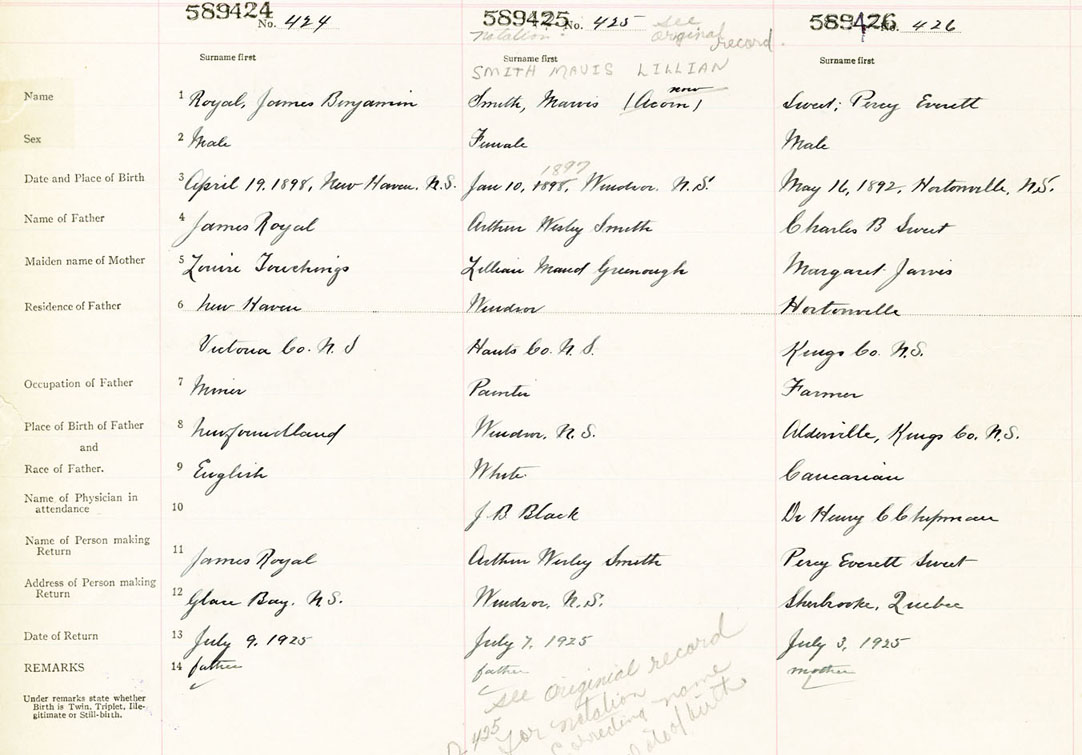 589424 No. 424 589425 No. 425 see 589426 No. 426
notation original record.
Surname first Surname first Surname first
SMITH MAVIS LILLIAN
Name 1 Royal, James Benjamin Smith, Mavis (now Acorn) Sweet, Percy Everett
Sex 2 Male Female Male
1897
Date and Place of Birth 3 April 19. 1898, New Haven. N.S. Jan 10, 1898, Windsor. N.S. May 16, 1892, Hortonville, N.S.
Name of Father 4 James Royal Arthur Wesley Smith Charles B Sweet
Maiden name of Mother 5 Louise Touchings Lillian Maud Greenough Margaret Jarvis
Residence of Father 6 New Haven Windsor Hortonville
Victoria Co. N.S Hants Co. N.S. Kings Co. N.S.
Occupation of Father 7 Miner Painter Farmer
Place of Birth of Father 8 Newfoundland Windsor, N.S. Kings Co. N.S.
and
Race of Father. 9 English White Caucasian
Name of Physician in
attendance 10 J. B. Black Dr Henry C Chipman
Name of Person making
Return 11 James Royal Arthur Wesley Smith Percy Everett Sweet
Address of Person making
Return 12 Glace Bay. N.S. Windsor, N.S. Sherbrooke, Quebec
Date of Return 13 July 9. 1925 July 7, 1925 July 3, 1925
REMARKS 14 father father mother
Under remarks state whether
Birth is Twin, Triplet, Ille-
gitimate or Still-birth.
see Originial record
425 for notation
correcting name
date of birth